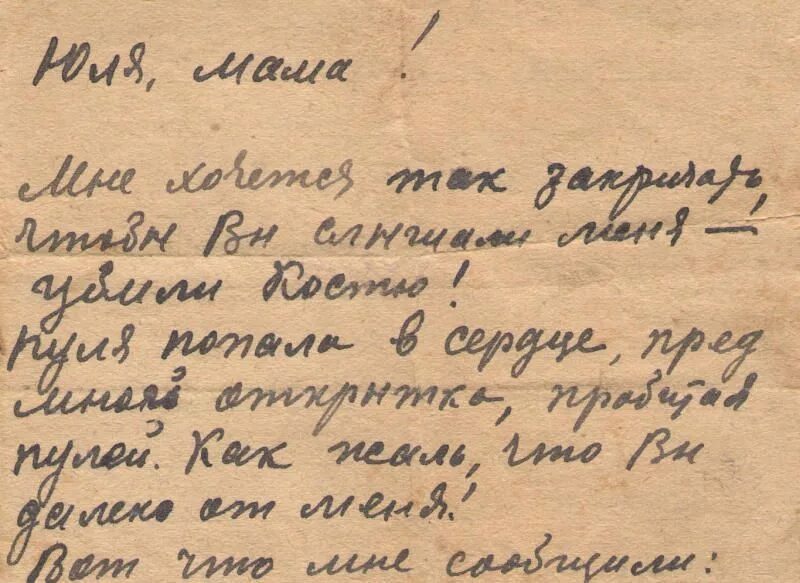 Юля, мама!
Мне хочется так закричать,
чтобы Вы слышали меня —
убили Костю!
пуля попала в сердце, пред
мной открытка, пробитая
пулей. Как жаль, что Вы
далеко от меня!
Вот что мне сообщили: